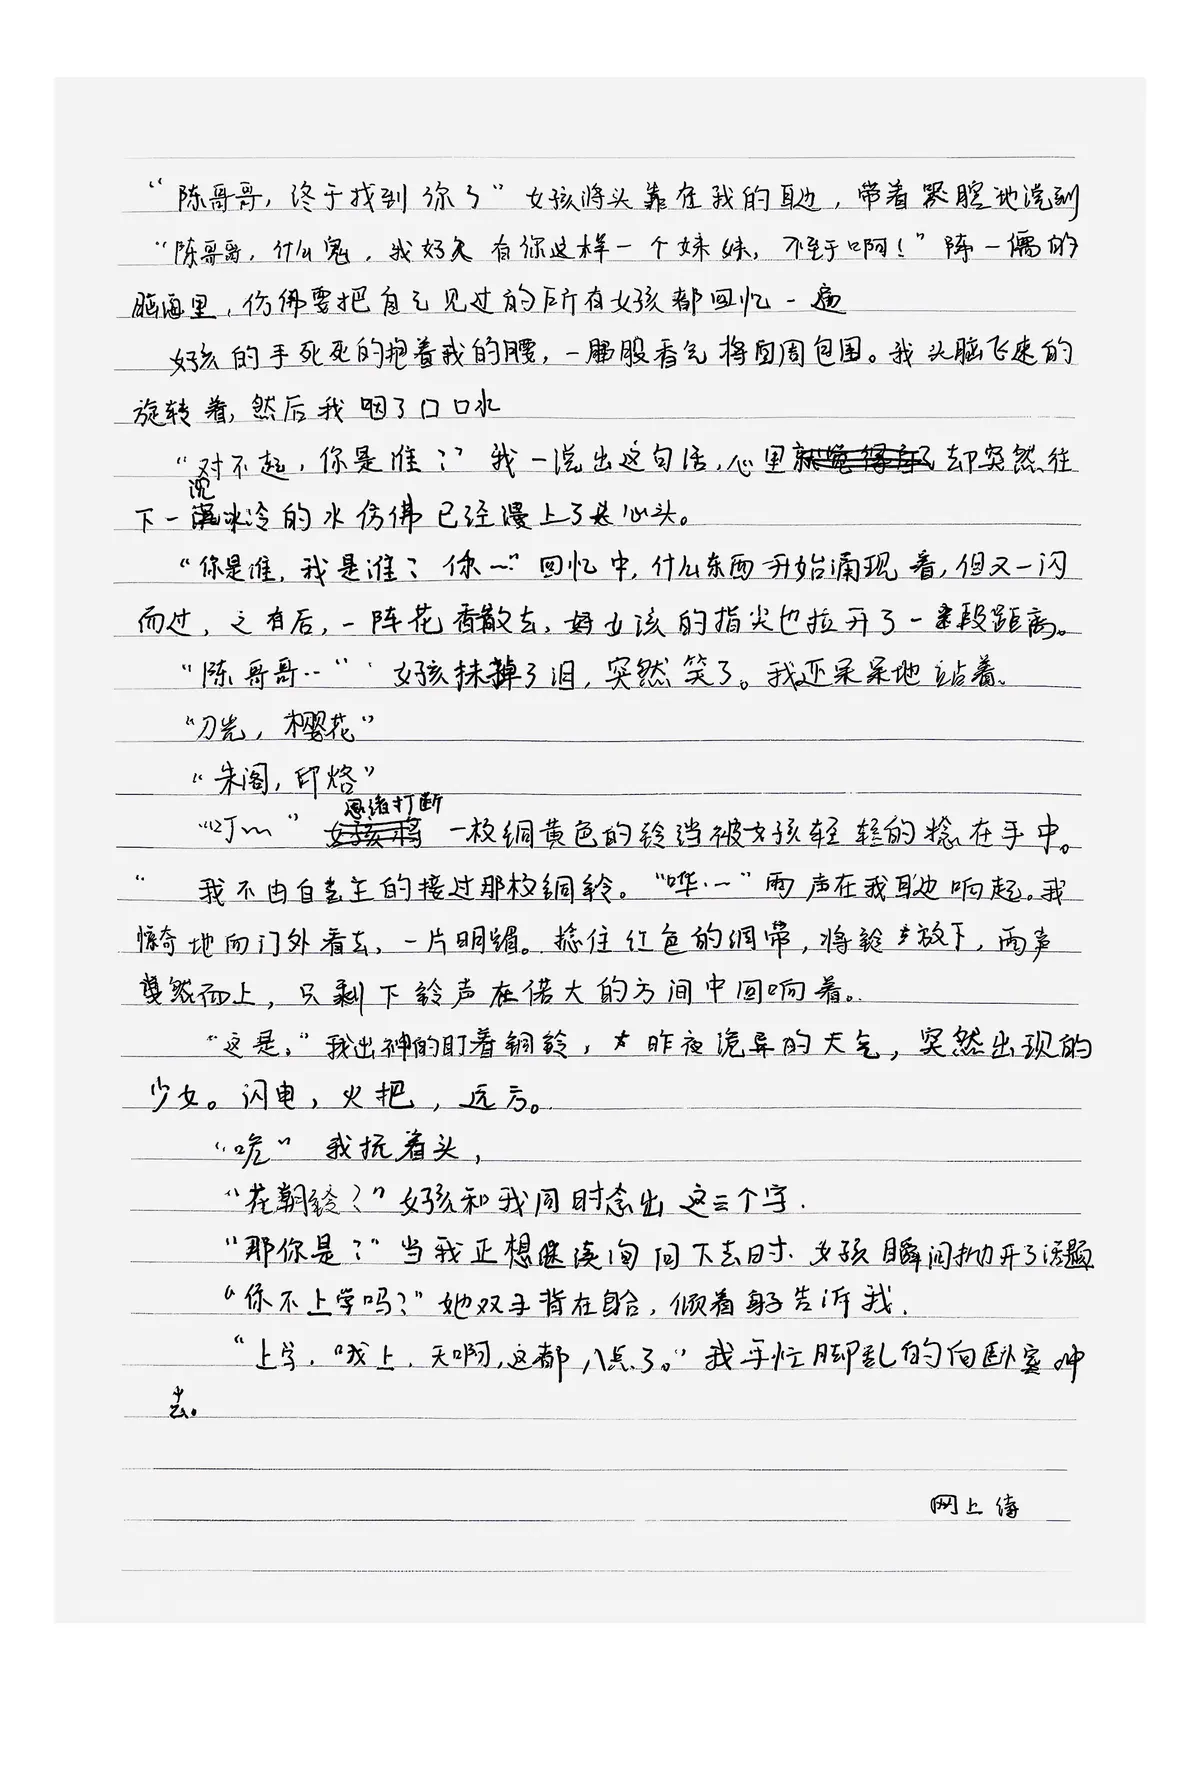 “陈哥哥，终于找到你了”女孩将头靠在我的耳边，带着哭腔地说到
“陈哥哥，什么鬼，我好久有你这样一个妹妹，不至于啊！”陈一儒的
脑海里，仿佛要把自己见过的所有女孩都回忆一遍
女孩的手死死的抱着我的腰，一股香气将四周包围。我头脑飞速的
旋转着，然后我咽了口口水
“对不起，你是谁？”我一说出这句话，心里却突然往
下一沉冰冷的水仿佛已经漫上了心头。
“你是谁，我是谁？你…”回忆中，什么东西开始涌现着，但又一闪
而过，之后，一阵花香散去，女孩的指尖也拉开了一段距离。
“陈哥哥…”女孩抹掉了泪，突然笑了。我还呆呆地站着。
“刀光，樱花”
“朱阁，印烙”
“叮…”思绪打断一枚铜黄色的铃铛被女孩轻轻的捻在手中。
“我不由自主的接过那枚铜铃。“哗…”雨声在我耳边响起。我
惊奇地向门外看去，一片明媚。捻住红色的绸带，将铃放下，雨声
戛然而止，只剩下铃声在偌大的方间中回响着。
“这是。”我出神的盯着铜铃，昨夜诡异的天气，突然出现的
少女。闪电，火把，远方。
“呃”我抚着头，
“花朝铃？”女孩和我同时念出这三个字.
“那你是？”当我正想继续询问下去时.女孩瞬间抛开了话题
“你不上学吗？”她双手背在身后，倾着身子告诉我.
“上学，哦上，天啊，这都八点了。”我手忙脚乱的向卧室冲
去。
网上待